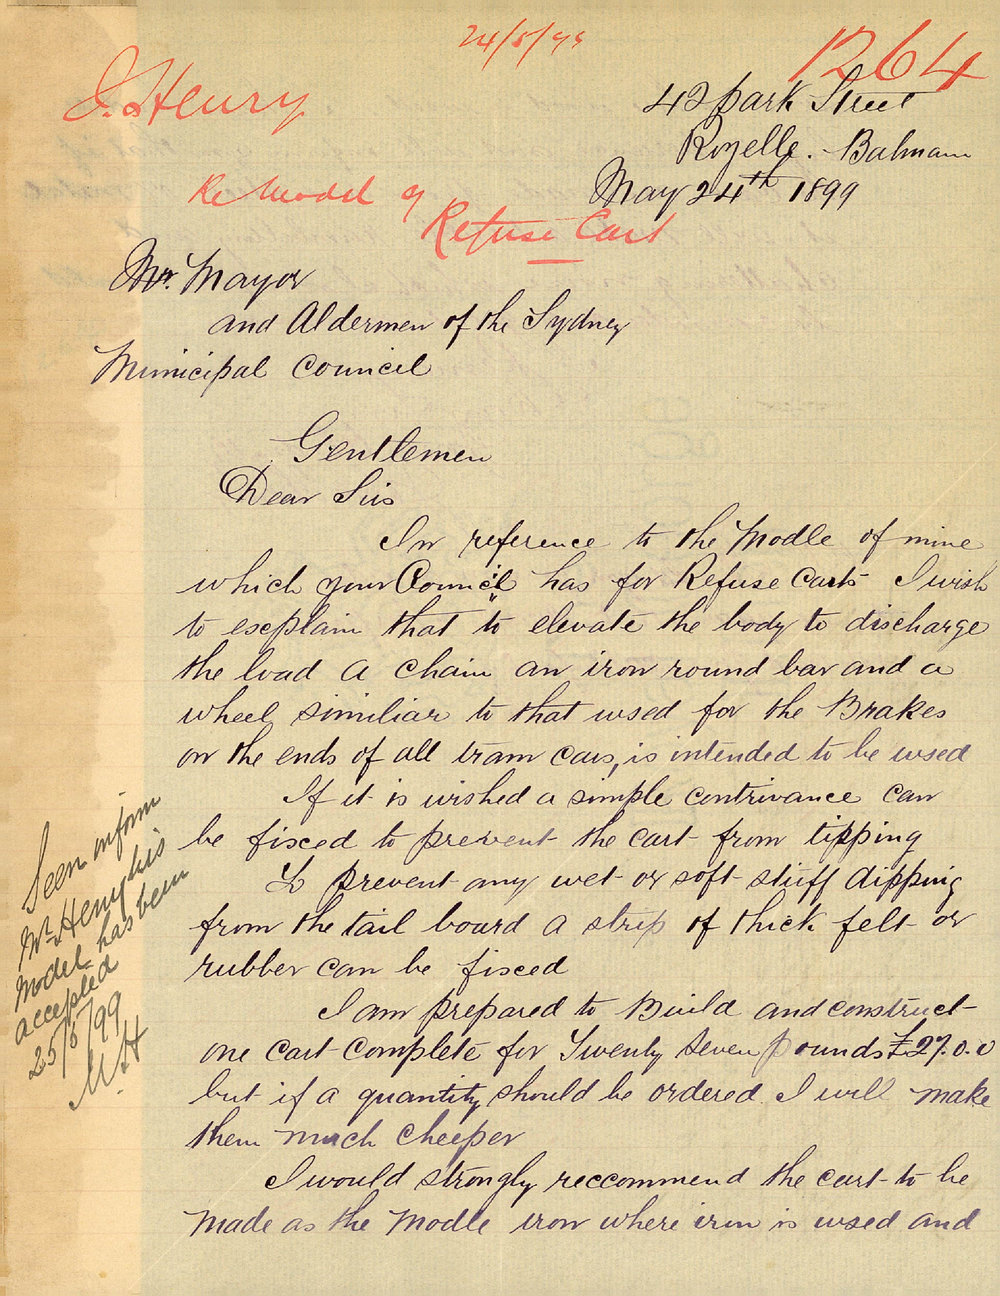 24/5/99
1264
J. Henry
42 park Street
Rozelle. Balmain
May 24th 1899
Re Model of
Refuse Cart
Mr. Mayor
and Aldermen of the Sydney
Municipal Council
Gentlemen
Dear Sirs
In reference to the Modle of mine
which your Council has for Refuse Carts I wish
to esceplain that to elevate the body to discharge
the load a chain an iron round bar and a
wheel similiar to that used for the Brakes
on the ends of all tram cars, is intended to be used
If it is wished a simple contrivance can
be fisced to prevent the cart from tipping
To prevent any wet or soft stuff dipping
from the tail board a strip of thick felt or
rubber can be fisced
I am prepared to Build and construct
one cart complete for Twenty Seven pounds £27.0.0
but if a quantity should be ordered I will make
them much cheeper
I would strongly reccommend the cart to be
made as the Modle iron where iron is used and
Seen inform
Mr. Henry his
model has been
accepted
25/5/99